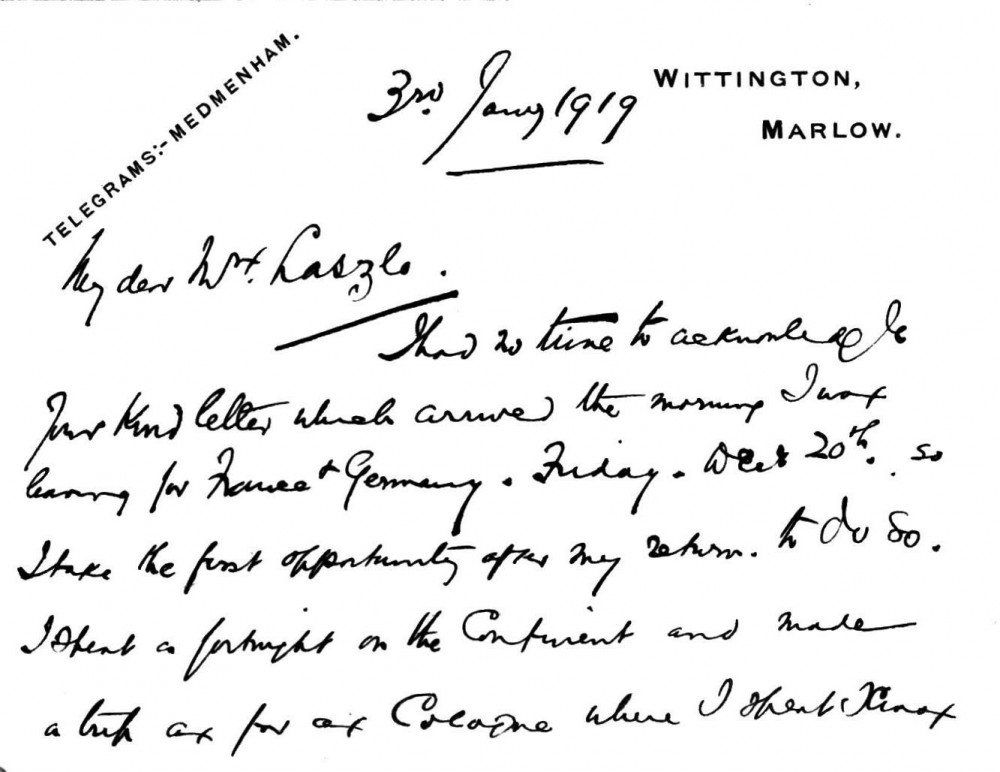 TELEGRAMS:- MEDMENHAM.
3rd. Jany 1919
WITTINGTON,
MARLOW.
My dear Mrs. Laszlo.
I had no time to acknowledge
your kind letter which arrived the morning I was
leaving for France & Germany. Friday. Dec 20th. so
I take the first opportunity after my return. to do so.
I spent a fortnight on the Continent and made
a trip as far as Cologne where I spent Xmas